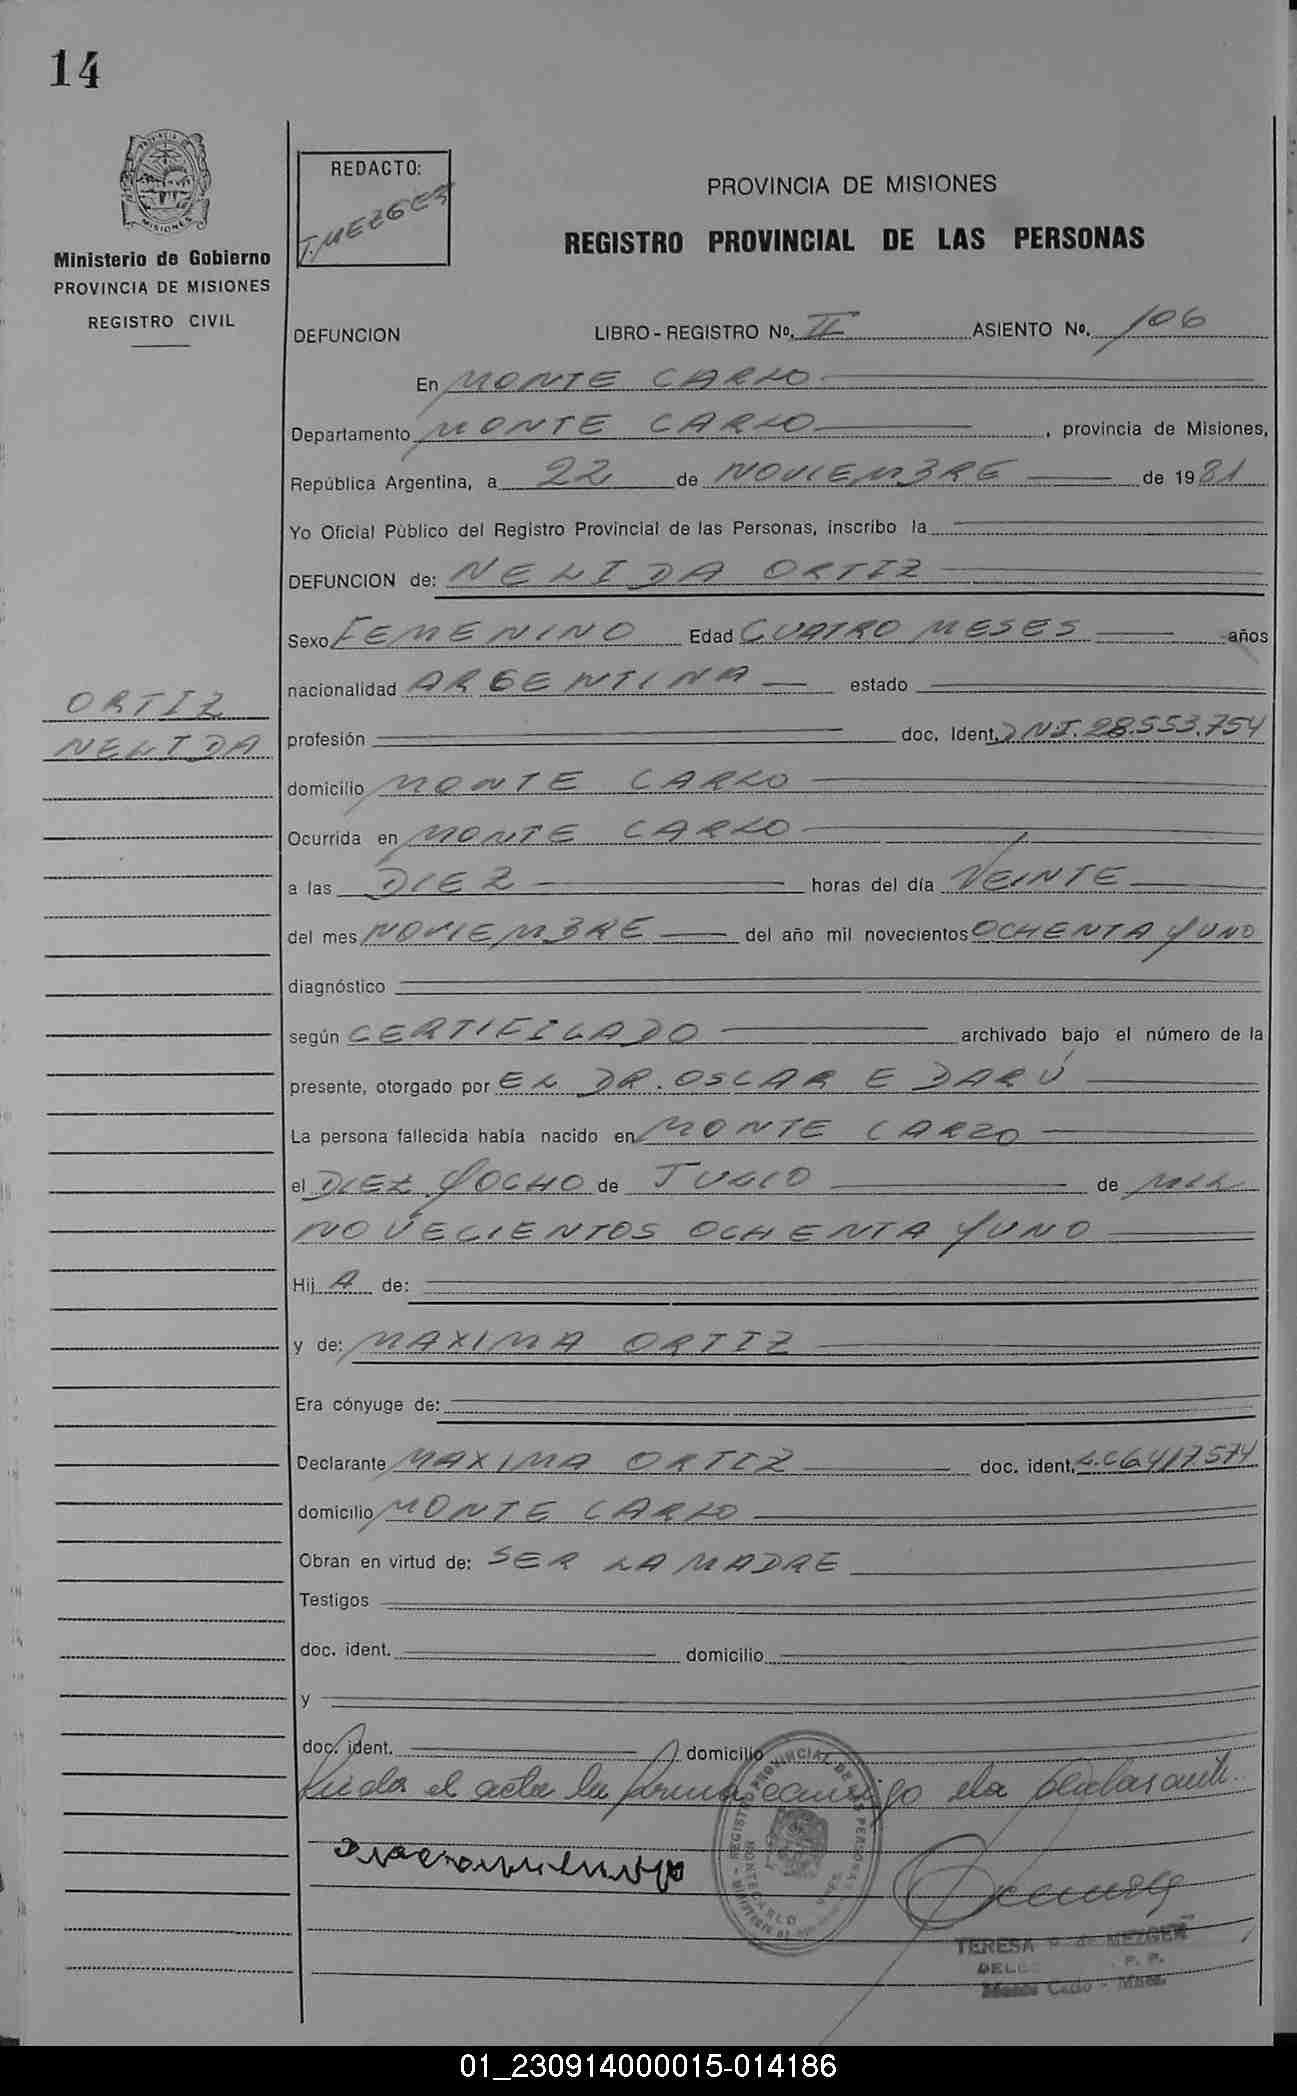 14
PROVINCIA DE
MISIONES
Ministerio de Gobierno
PROVINCIA DE MISIONES
REGISTRO CIVIL
REDACTO:
T. MEZGER
PROVINCIA DE MISIONES
REGISTRO PROVINCIAL DE LAS PERSONAS
DEFUNCION LIBRO-REGISTRO No. II ASIENTO No. 106
En MONTE CARLO
Departamento MONTE CARLO, provincia de Misiones,
República Argentina, a 22 de NOVIEMBRE de 1981
Yo Oficial Público del Registro Provincial de las Personas, inscribo la
DEFUNCION de: NELIDA ORTIZ
Sexo FEMENINO Edad CUATRO MESES años
nacionalidad ARGENTINA estado
ORTIZ
NELIDA
profesión doc. Ident. DNI. 28.553.754
domicilio MONTE CARLO
Ocurrida en MONTE CARLO
a las DIEZ horas del día VEINTE
del mes NOVIEMBRE del año mil novecientos OCHENTA Y UNO
diagnóstico
según CERTIFICADO archivado bajo el número de la
presente, otorgado por EL DR. OSCAR E DARÚ
La persona fallecida había nacido en MONTE CARLO
el DIEZ Y OCHO de JULIO de MIL
NOVECIENTOS OCHENTA Y UNO
Hij A de:
y de: MAXIMA ORTIZ
Era cónyuge de:
Declarante MAXIMA ORTIZ doc. ident. L.C 6.417.574
domicilio MONTE CARLO
Obran en virtud de: SER LA MADRE
Testigos
doc. ident. domicilio
y
doc. ident. domicilio
Leida el acta la firma conmigo la
REGISTRO PROVINCIAL DE LAS PERSONAS
MONTECARLO
TERESA de MEZGER
Monte Carlo - Mnes.
01_230914000015-014186